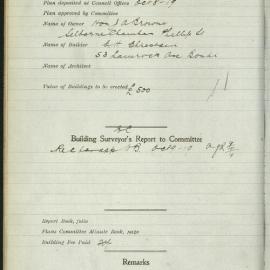 Plan deposited at Council Offices Oct 8-19
Plan approved by Committee
Name of Owner Hon J A Browne
Selborne Chambers Phillip St
Name of Builder
53 Lamrock Ave Bondi
Name of Architect
Value of Buildings to be erected £500
Building Surveyor's Report to Committee
Report Book, folio
Plans Committee Minute Book, page
Building Fee Paid
Remarks